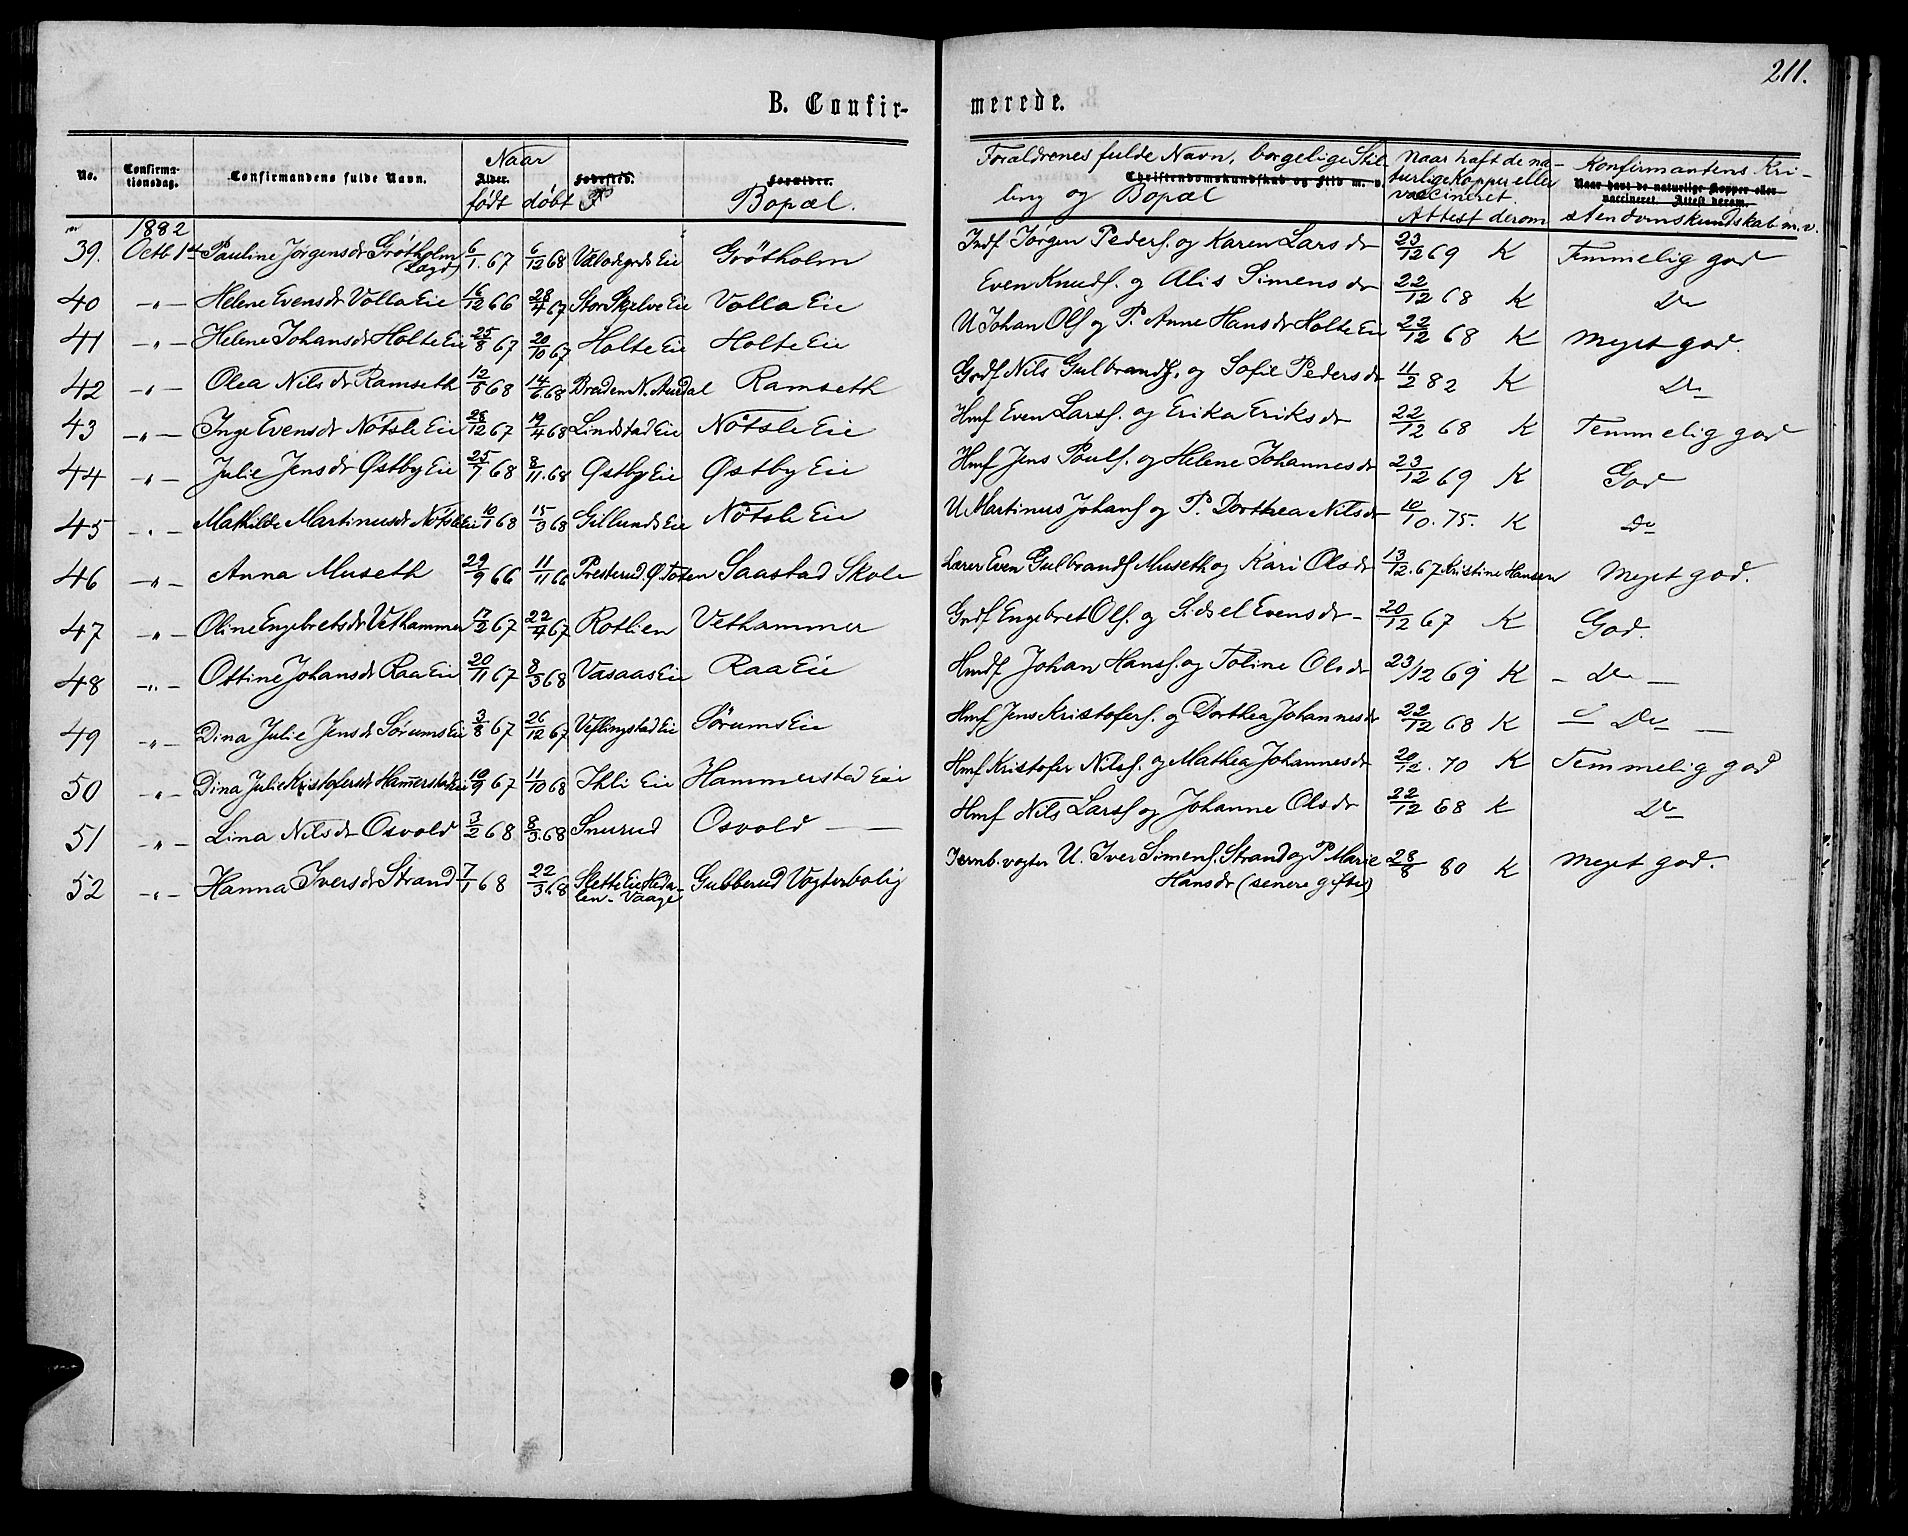 211.
B. Confirmerede.
No. Confirmationsdag. Confirmandens fulde Navn. Naar Alder. født døbt Fødested. Forælder. Bopæl. Forældrenes fulde Navn, borgelige Stilling og Bopæl Christendomskundskab og Flid m. v. Naar haft de naturlige Kopper eller vaccineret. Attest derom Konfirmantens Kristendomskundskab m.v. Naar havt de naturlige Kopper eller vaccineret. Attest derom.
1882
39. Octb 1ste Pauline Jørgensdr Grötholm (Lagd) 6/1.67 6/12 68 Eie Grötholm Indf Jørgen Peders. og Karen Larsdr 23/12 69 K Temmelig god
40 -"- Helene Evensdr Volla Eie 16/12 66 28/4 67 Stor Skjelve Eie Volla Eie Even Knuds. og Alis Simensdr 22/12 68 K Do
41 -"- Helene Johansdr Holte Eie 25/8 67 20/10 67 Holte Eie Holte Eie U Johan Ols og P. Anne Hansdr Holte Eie 22/12 68 K Meget god.
42 -"- Olea Nilsdr Ramseth 12/5 68 14/6.68 Braden N. Aurdal Ramseth Grdf Nils Gulbrands. og Sofie Pedersdr 11/2 82 K Do
43 -"- Inge Evensdr Nötsle Eie 28/12 67 19/4 68 Lindstad Eie Nötsle Eie Hmf Even Lars. og Erika Eriksdr 22/12 68 K Temmelig god
44 -"- Julie Jensdr Østby Eie 25/7 68 8/11.68 Østby Eie Østby Eie Hmf Jens Pouls. og Helene Johannesdr 23/12 69 K God
45 -"- Mathilde Martinusdr Nötsle Eie 10/1 68 15/3 68 Gillunds Eie Nötsle Eie U Martinus Johans og P. Dorthea Nilsdr 10/10.75. K Do
46 -"- Anna Museth 29/9 66 11/11 66 Presterud. Ø. Toten Saastad Skole Lærer Even Gulbrands Museth og Kari Olsdr 13/12.67 Kristine Hansen Meget god.
47 -"- Oline Engebretsdr Vethammer 17/2 67 22/4 67 Rotlien Vethammer Grdf Engebret Ols. og Sidsel Evensdr 20/12 67 K God.
48 -"- Ottine Johansdr Raa Eie 20/11 67 8/3 68 Vasaas Eie Raa Eie Hmdf Johan Hans. og Toline Olsdr 23/12 69 K - Do -
49 -"- Dina Julie Jensdr Sørums Eie 3/8 67 26/12 67 Veflingstad Eie Sørums Eie Hmf Jens Kristofers. og Dorthea Johannesdr 22/12 68 K - Do -
50 -"- Dina Julie Kristofersdr Hamerstad Eie 10/9 67 11/10 68 Ihli Eie Hammerstad Eie Hmf Kristofer Nils. og Mathea Johannesdr 20/12.70 K Temmelig god
51 -"- Lina Nilsdr Osvold 3/2 68 8/3.68 Snurud Osvold Hmf Nils Lars og Johanne Olsdr 22/12 68 K Do
52 -"- Hanna Iversdr Strand 7/1 68 22/3 68 Slette Eie Hedalen - Vaage Gubberud Vogterbolig Jernb. vogter U. Iver Simens. Strand og P Marie Hansdr (senere gifte) 28/8 80 K Meget god.